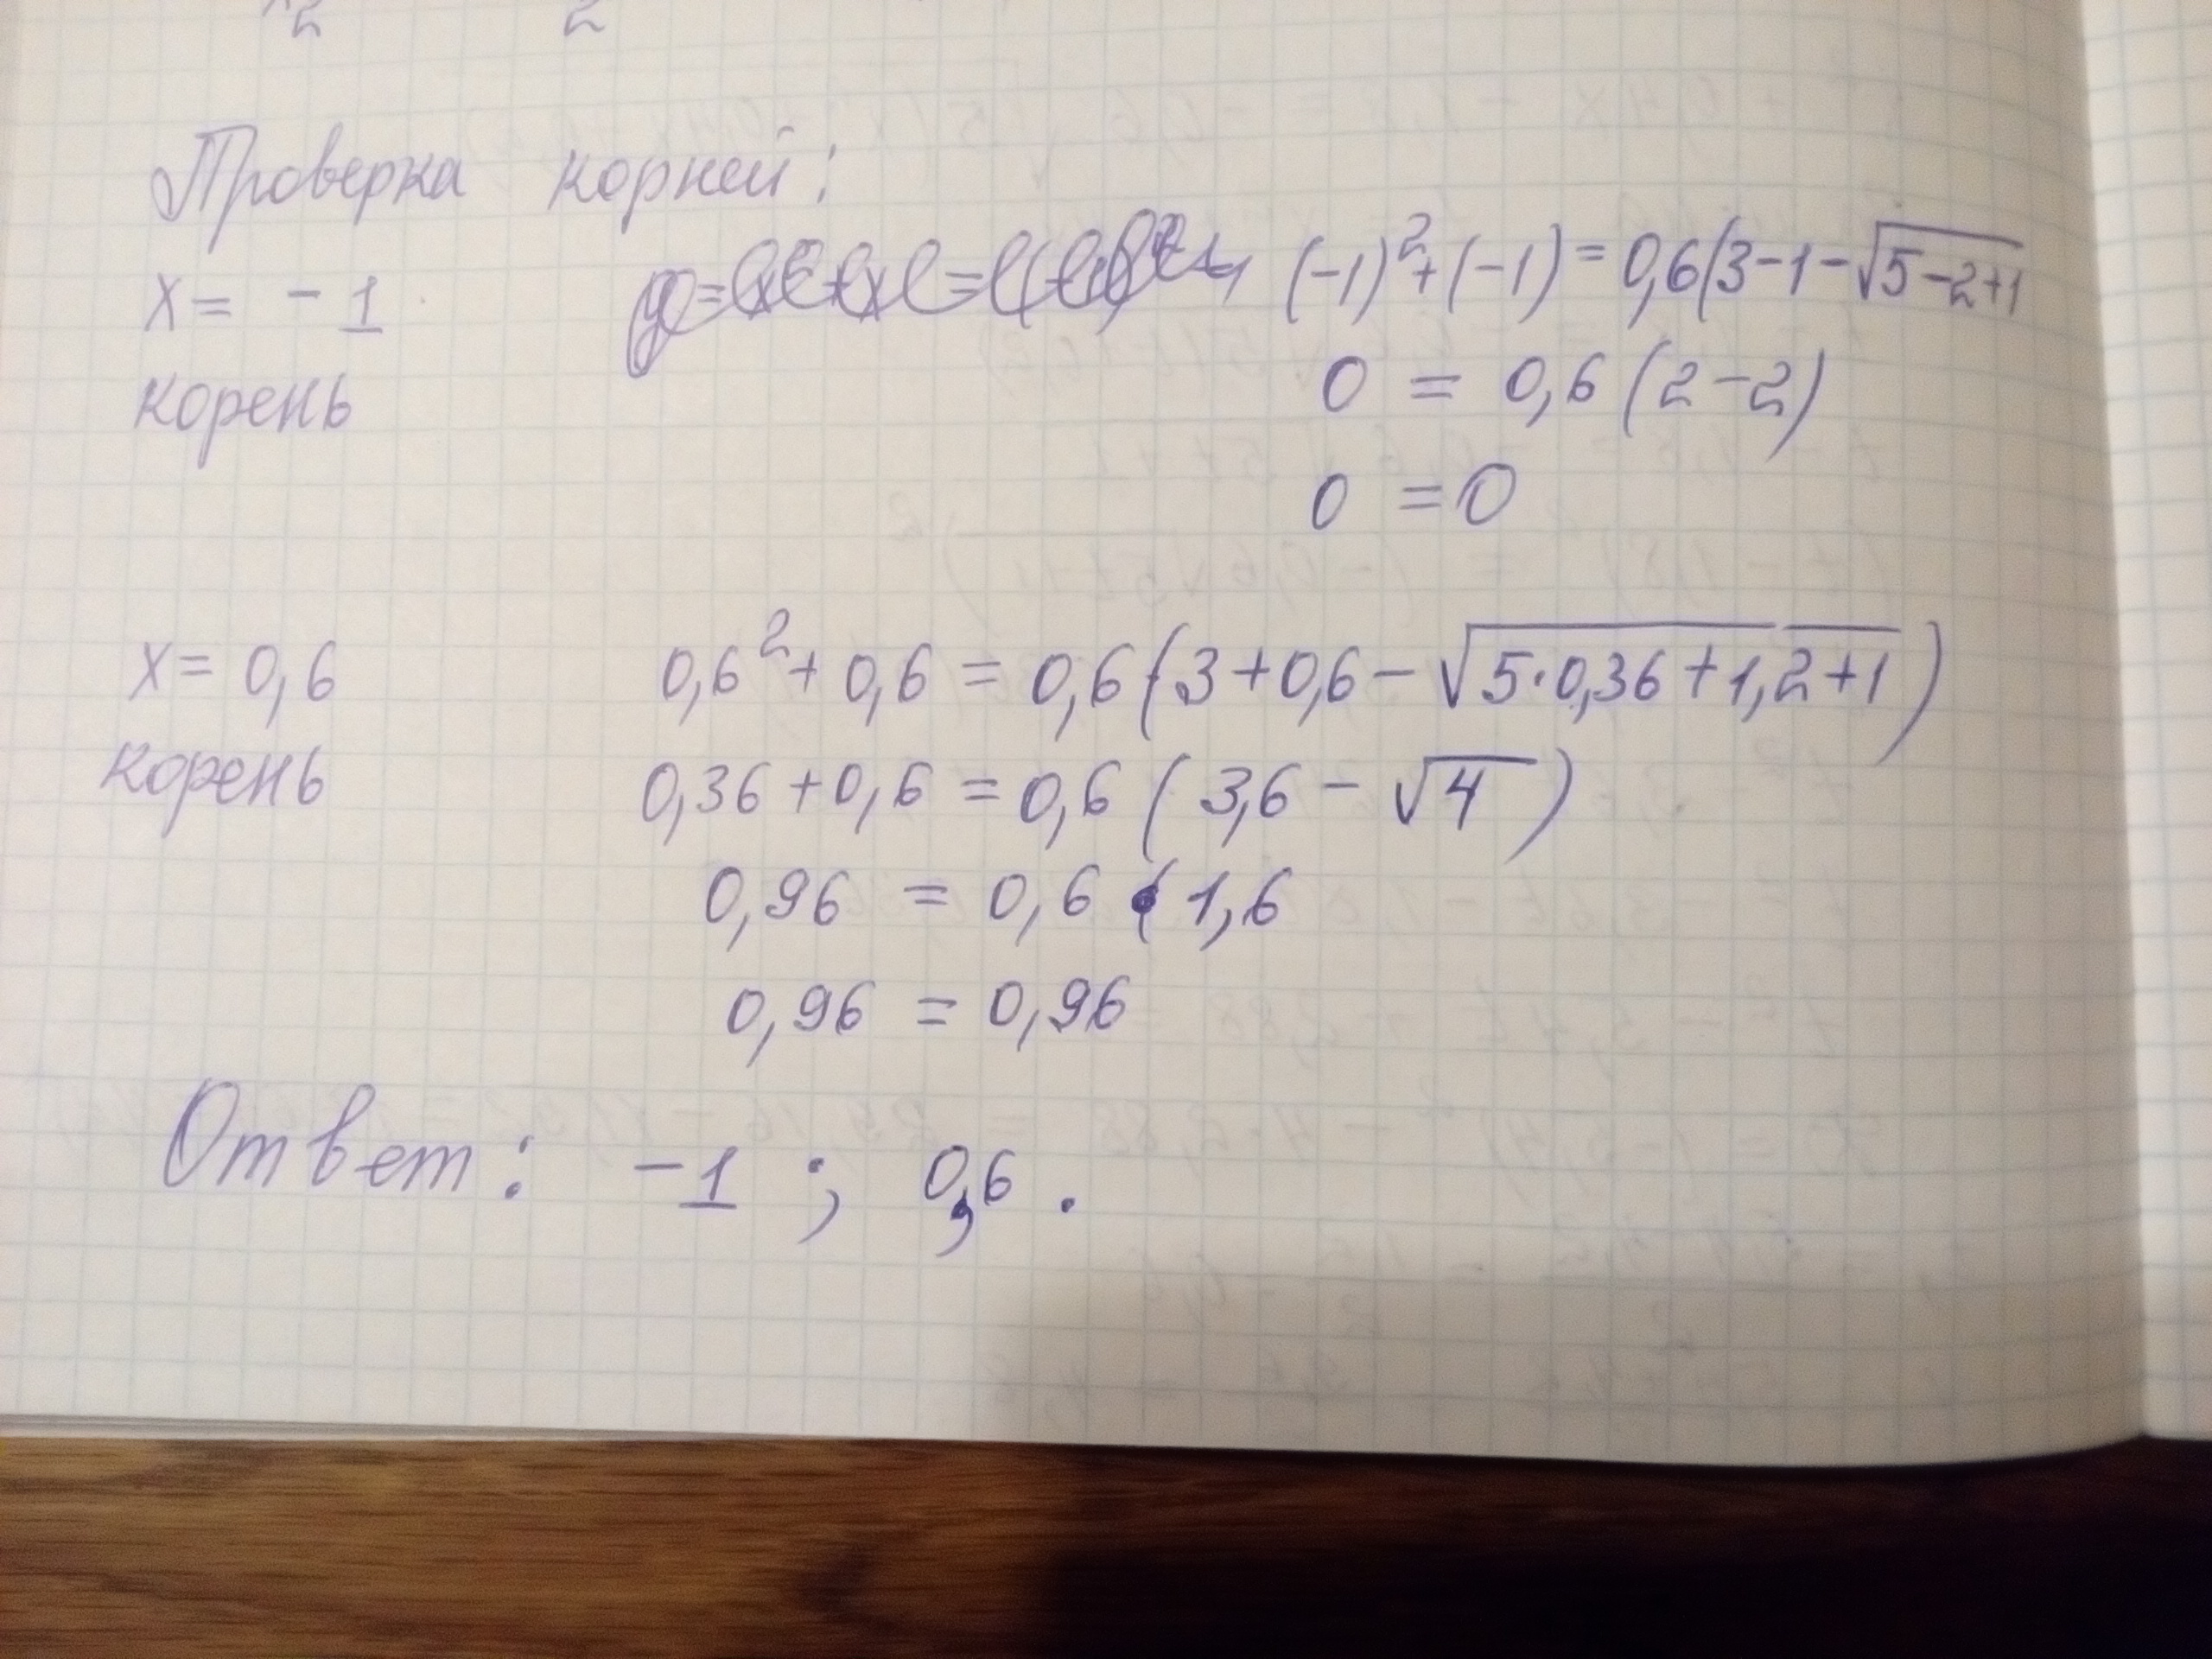 2 2
Проверка корней:
x = -1 (-1)²+(-1) = 0,6(3-1-√5-2+1
корень 0 = 0,6(2-2)
0 = 0
x = 0,6 0,6²+0,6 = 0,6(3+0,6-√5·0,36+1,2+1)
корень 0,36+0,6 = 0,6(3,6-√4)
0,96 = 0,6 · 1,6
0,96 = 0,96
Ответ: -1; 0,6.